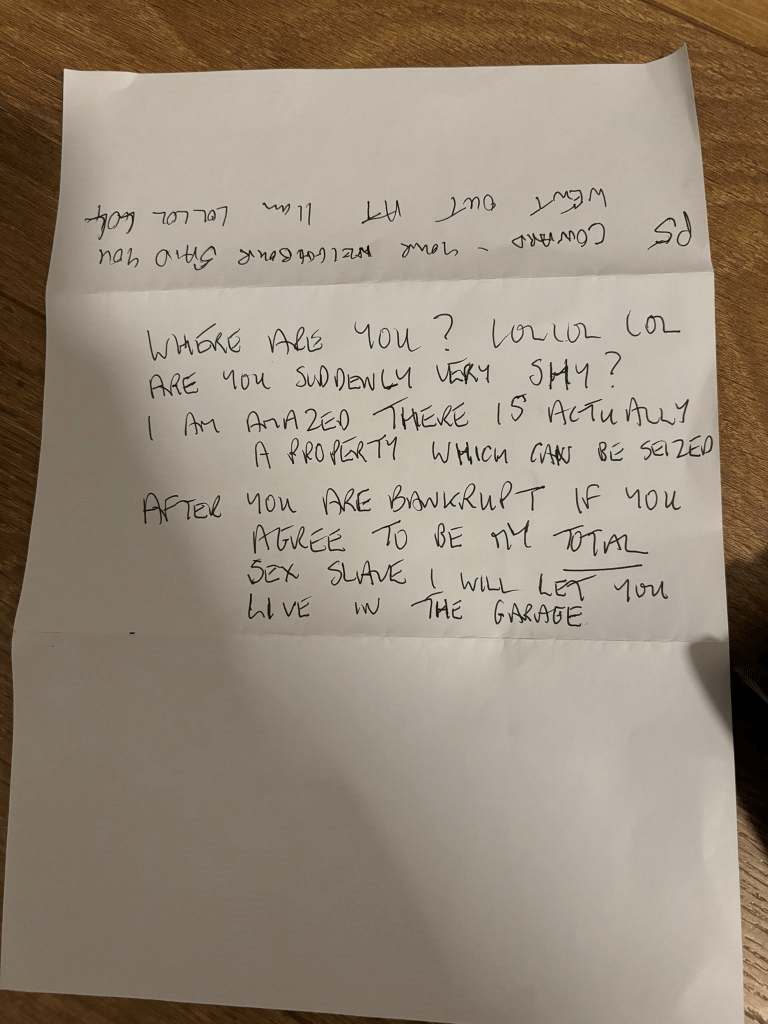 WHERE ARE YOU? LOLLOL LOL
ARE YOU SUDDENLY VERY SHY?
I AM AMAZED THERE IS ACTUALLY
A PROPERTY WHICH CAN BE SEIZED
AFTER YOU ARE BANKRUPT IF YOU
AGREE TO BE MY TOTAL
SEX SLAVE I WILL LET YOU
LIVE IN THE GARAGE
PS COWARD - YOUR NEIGHBOUR SAID YOU
WENT OUT AT 11am LOLLOL LOL